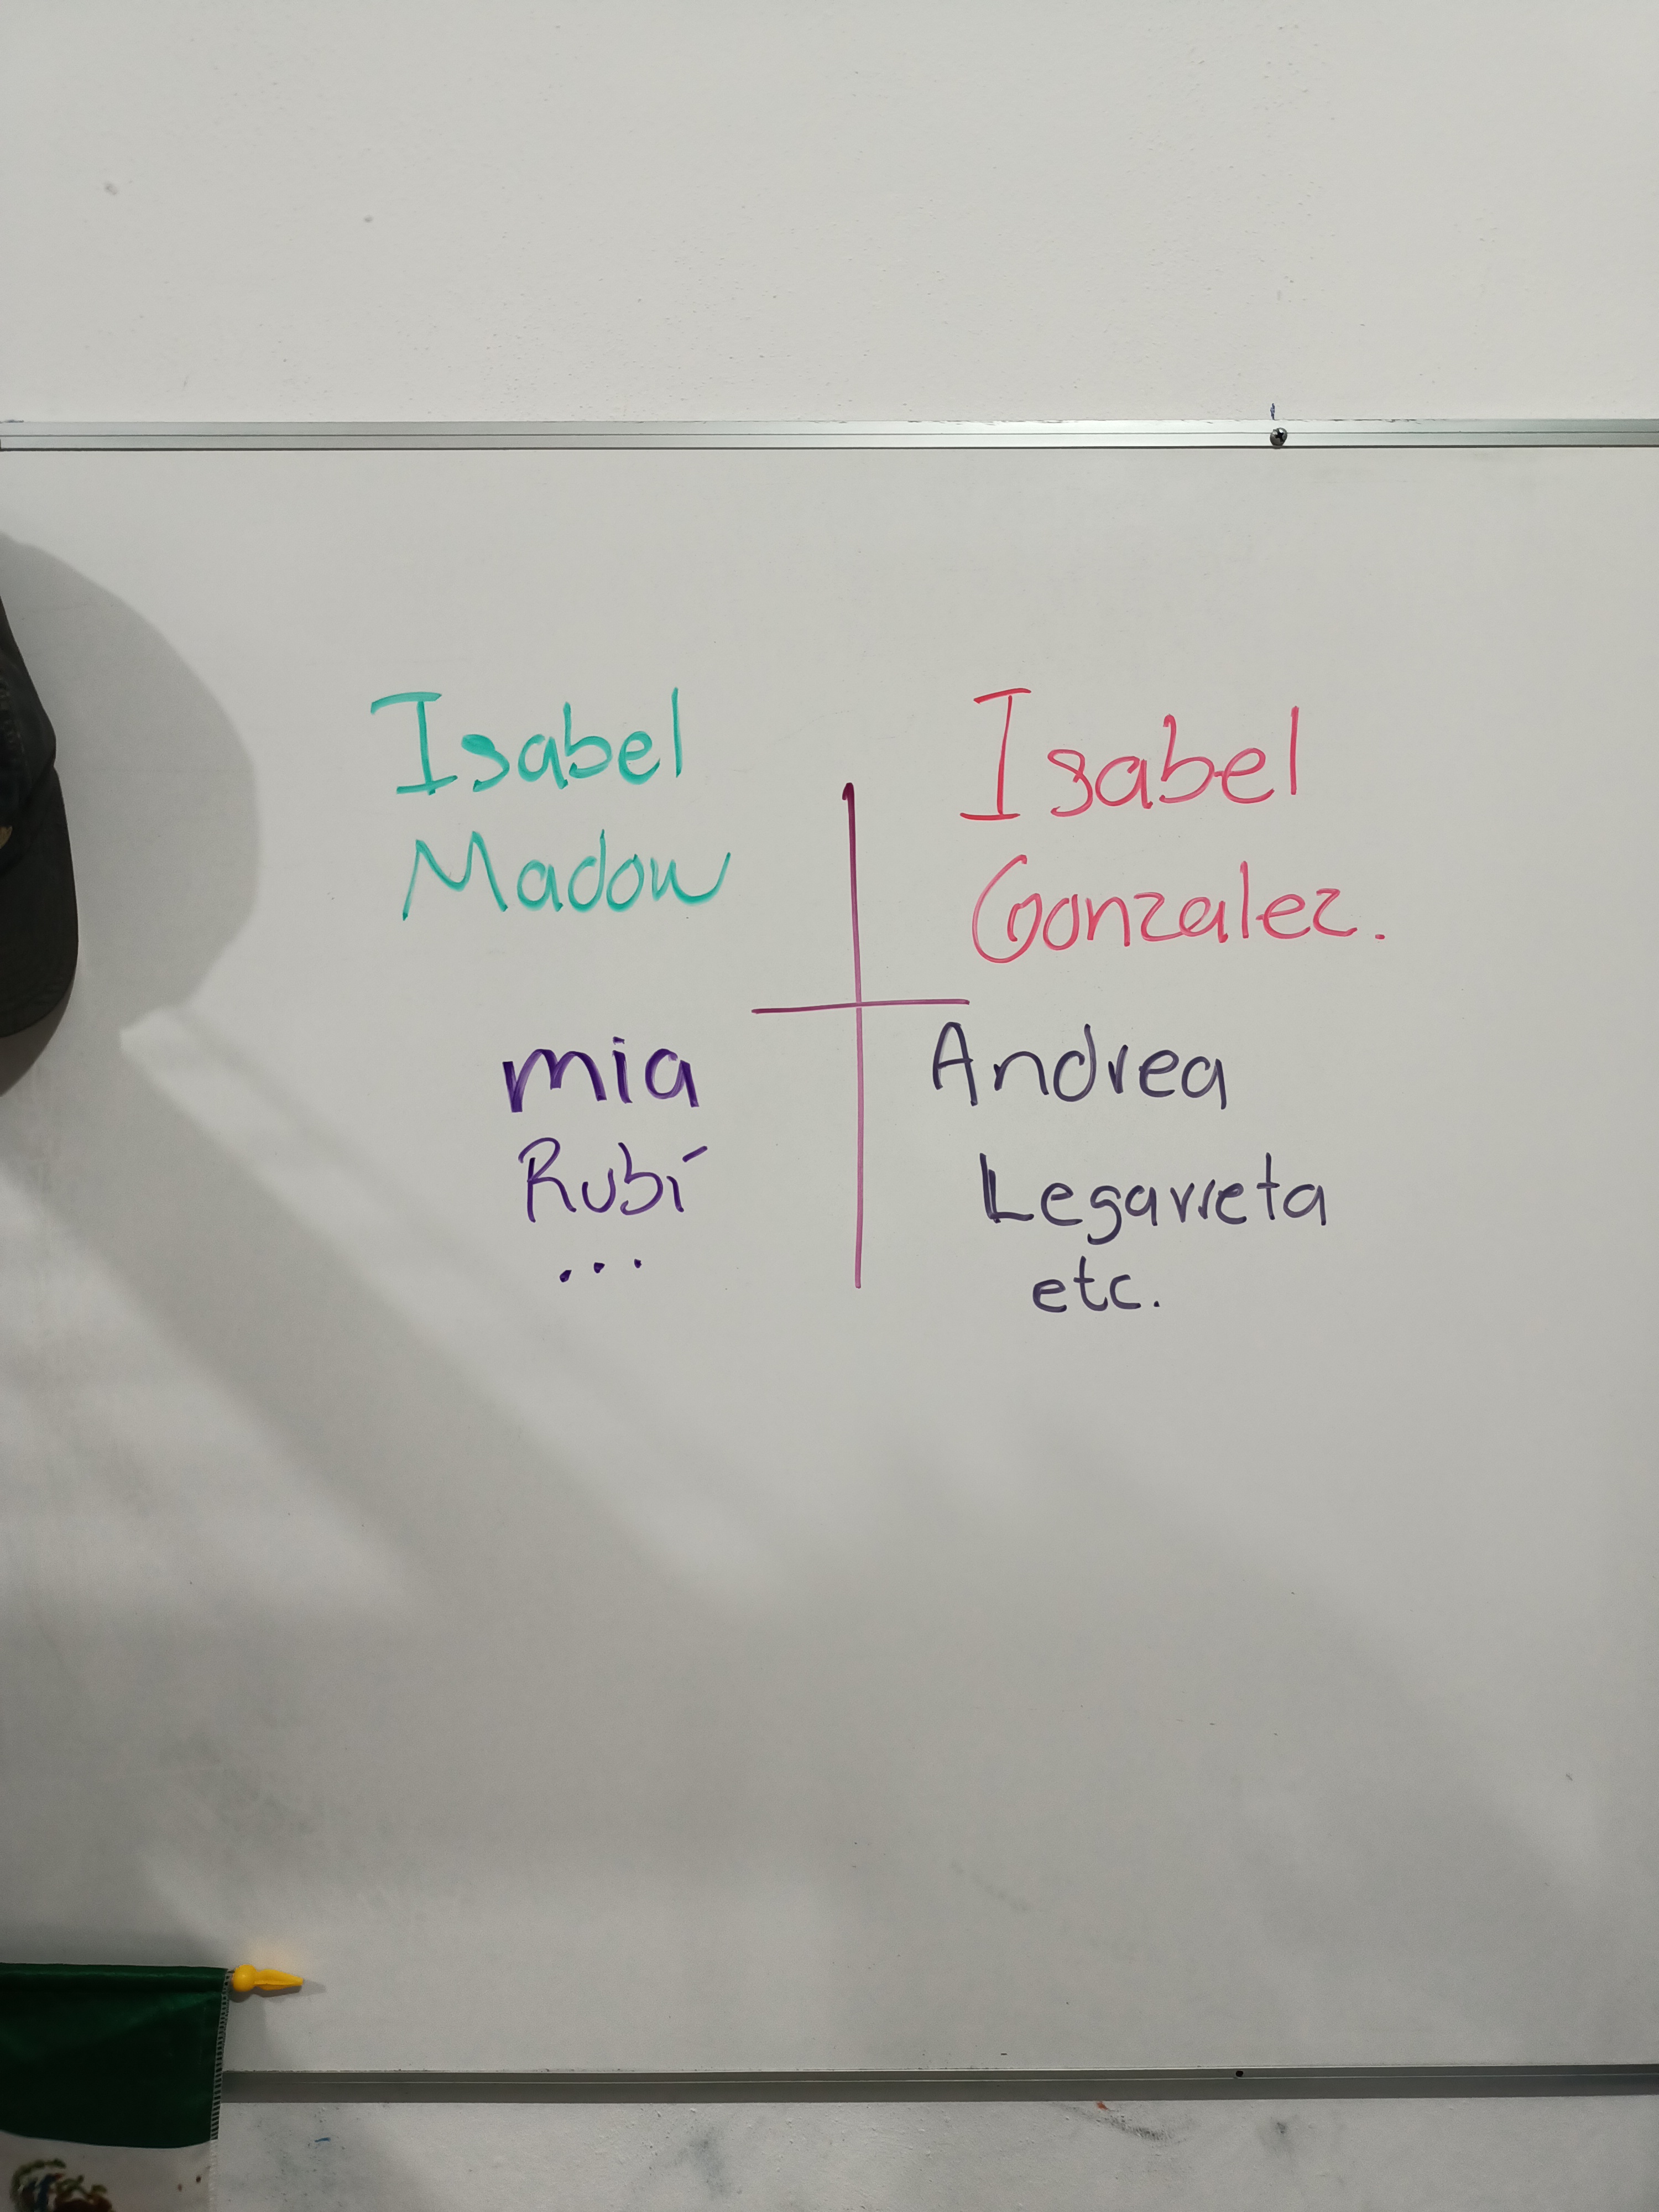 Isabel
Madow
mia
Rubí
...
Isabel
Gonzalez.
Andrea
Legarreta
etc.